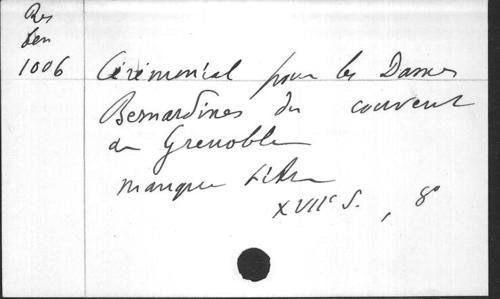 Res
Len
1006
Cérémonial pour les Dames
Bernardines du couvent
de Grenoble
manque titre
XVIIe S. , 8°